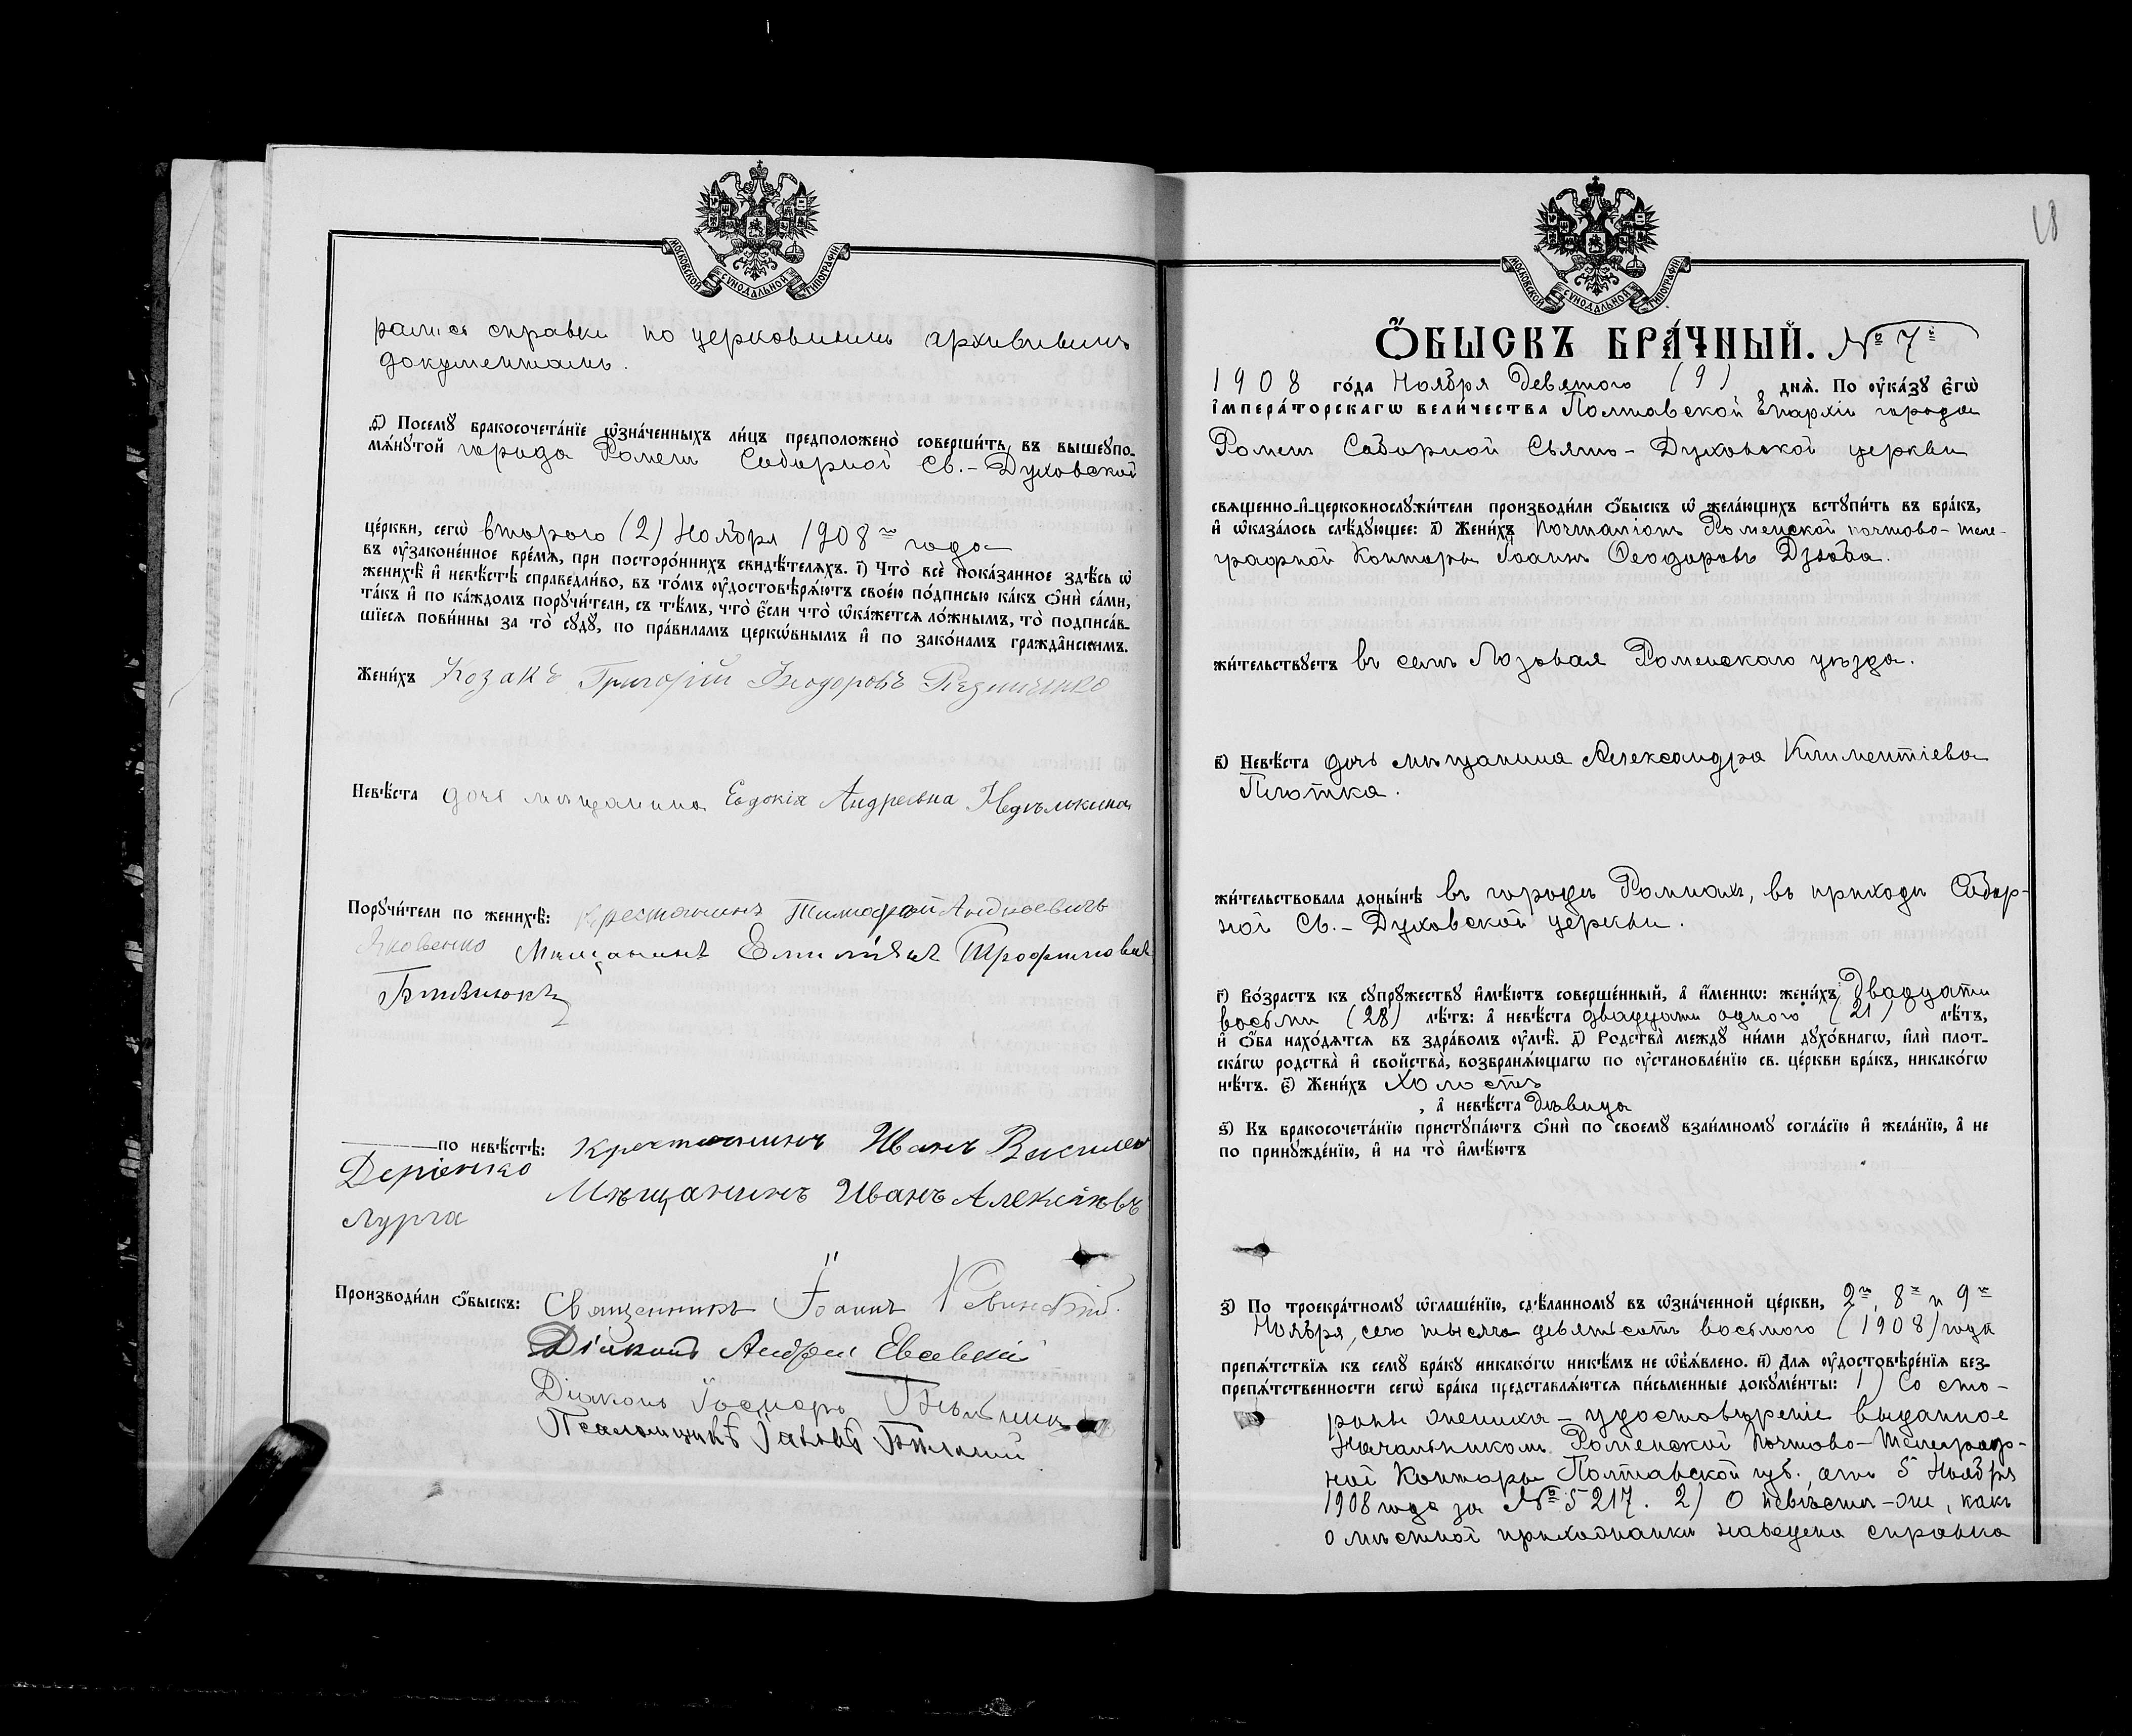 МОСКОВСКОЙ СѴНОДАЛЬНОЙ ТИПОГРАФІИ
справки по церковнымъ архивнымъ
документамъ.
Посемꙋ бракосочета́нїе ѡ҆зна́ченныхъ ли́цъ предположено̀ соверши́ть въ вышеꙋпо-
мѧ́нꙋтой города Ромен Соборной Св.-Духовской
це́ркви, сегѡ̀ второго (2) Ноября 1908го года
въ ᲂу҆зако́ненное вре́мѧ, при посторо́ннихъ свидѣ́телѧхъ. і҃) Что̀ всѐ пока́занное здѣ́сь ѡ҆
женихѣ̀ и҆ невѣ́стѣ справедли́во, въ то́мъ ᲂу҆достовѣрѧ́ютъ своею по́дписью ка́къ ѻ҆нѝ са́ми,
та́къ и҆ по ка́ждомъ порꙋчи́тели, съ тѣ́мъ, что̀ є҆́сли что̀ ѡ҆ка́жетсѧ ло́жнымъ, то̀ подписа́в-
шїесѧ пови́нны за то̀ сꙋдꙋ̀, по пра́виламъ церкѡ́внымъ и҆ по зако́намъ гражда̑нскимъ.
Жени́хъ Козакъ Григорій Ѳеодоровъ Рѣзниченко
Невѣ́ста дочь мѣщанина Евдокія Андреевна Недѣлькина
Порꙋчи́тели по женихѣ̀: Крестьянинъ Тимофей Андреевичъ
Яковенко Мѣщанинъ Емиліянъ Трофимовъ
по невѣ́стѣ: Крестьянинъ Иванъ Василев
Деріенко Мѣщанинъ Иванъ Алексѣевъ
Лурга
Производи́ли ѻ҆́быскъ: Священникъ Іоаннъ
Діаконъ Андрей Евсевскій
Діаконъ
Псаломщикъ Іаковъ
18
МОСКОВСКОЙ СѴНОДАЛЬНОЙ ТИПОГРАФІИ
Ѻ҆́БЫСКЪ БРА́ЧНЫЙ. № 7й
1908 го́да Ноября Девятого (9) днѧ̀. По ᲂу҆ка́зꙋ є҆гѡ̀
і҆мпера́торскагѡ вели́чества Полтавской Епархіи города
Ромен Соборной Свято-Духовской церкви
свѧщенно-и҆-церковнослꙋжи́тели производи́ли ѻ҆́быскъ ѡ҆ жела́ющихъ встꙋпи́ть въ бра́къ,
и҆ ѡ҆каза́лось слѣ́дꙋющее: а҃) Жени́хъ Почталіонъ Роменской почтово-теле-
графной Конторы Іоаннъ Ѳеодоровъ Дзюба.
жи́тельствꙋетъ въ селѣ Лозовая Роменскаго уѣзда.
в҃) Невѣ́ста дочь мѣщанина Александра Климентіева
Плотка.
жи́тельствовала доны́нѣ въ городѣ Ромнахъ, въ приходѣ Собор-
ной Св.-Духовской церкви.
г҃) Во́зрастъ къ сꙋпрꙋ́жествꙋ и҆мѣ́ютъ соверше́нный, а҆ и҆́меннѡ: жени́хъ Двадцати
восьми (28) лѣ́тъ: а҆ невѣ́ста двадцати одного (21) лѣ́тъ,
и҆ ѻ҆́ба нахо́дѧтсѧ въ здра́вомъ ᲂу҆мѣ̀. д҃) Родства̀ междꙋ̀ ни́ми дꙋхо́внагѡ, и҆лѝ плот-
ска́гѡ родства̀ и҆ свойства̀, возбранѧ́ющагѡ по ᲂу҆становле́нїю св. це́ркви бра́къ, никако́гѡ
нѣ́тъ. є҃) Жени́хъ холостъ
, а҆ невѣ́ста дѣвица
ѕ҃) Къ бракосочета́нїю пристꙋпа́ютъ ѻ҆нѝ по своемꙋ̀ взаи́мномꙋ согла́сїю и҆ жела́нїю, а҆ не
по принꙋжде́нїю, и҆ на то̀ и҆мѣ́ютъ
з҃) По троекра́тномꙋ ѡ҆глаше́нїю, сдѣ́ланномꙋ въ ѡ҆зна́ченной це́ркви, 2го, 8го и 9го
Ноября, сего тысяча девятьсотъ восьмого (1908) года
препѧ́тствїѧ къ семꙋ̀ бра́кꙋ никако́гѡ никѣ́мъ не ѡ҆б̾ѧ́влено. и҃) Длѧ ᲂу҆достовѣре́нїѧ без-
препѧ́тственности сегѡ̀ бра́ка представлѧ́ютсѧ пи́сьменные докꙋме́нты: 1) Со сто-
роны жениха - удостовѣреніе выданное
Начальникомъ Роменской Почтово-Телеграф-
ной Конторы Полтавской губ., отъ 5 Ноября
1908 года за № 5217. 2) О невѣстѣ-же, какъ
о мѣстной прихожанки наведена справка